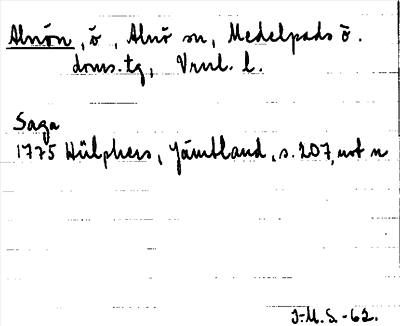 Alnön, ö, Alnö sn, Medelpads ö.
doms. tg, Vrnl. l.
Saga
1775 Hülphers, Jämtland, s. 207, not n
J.M.S.-62.